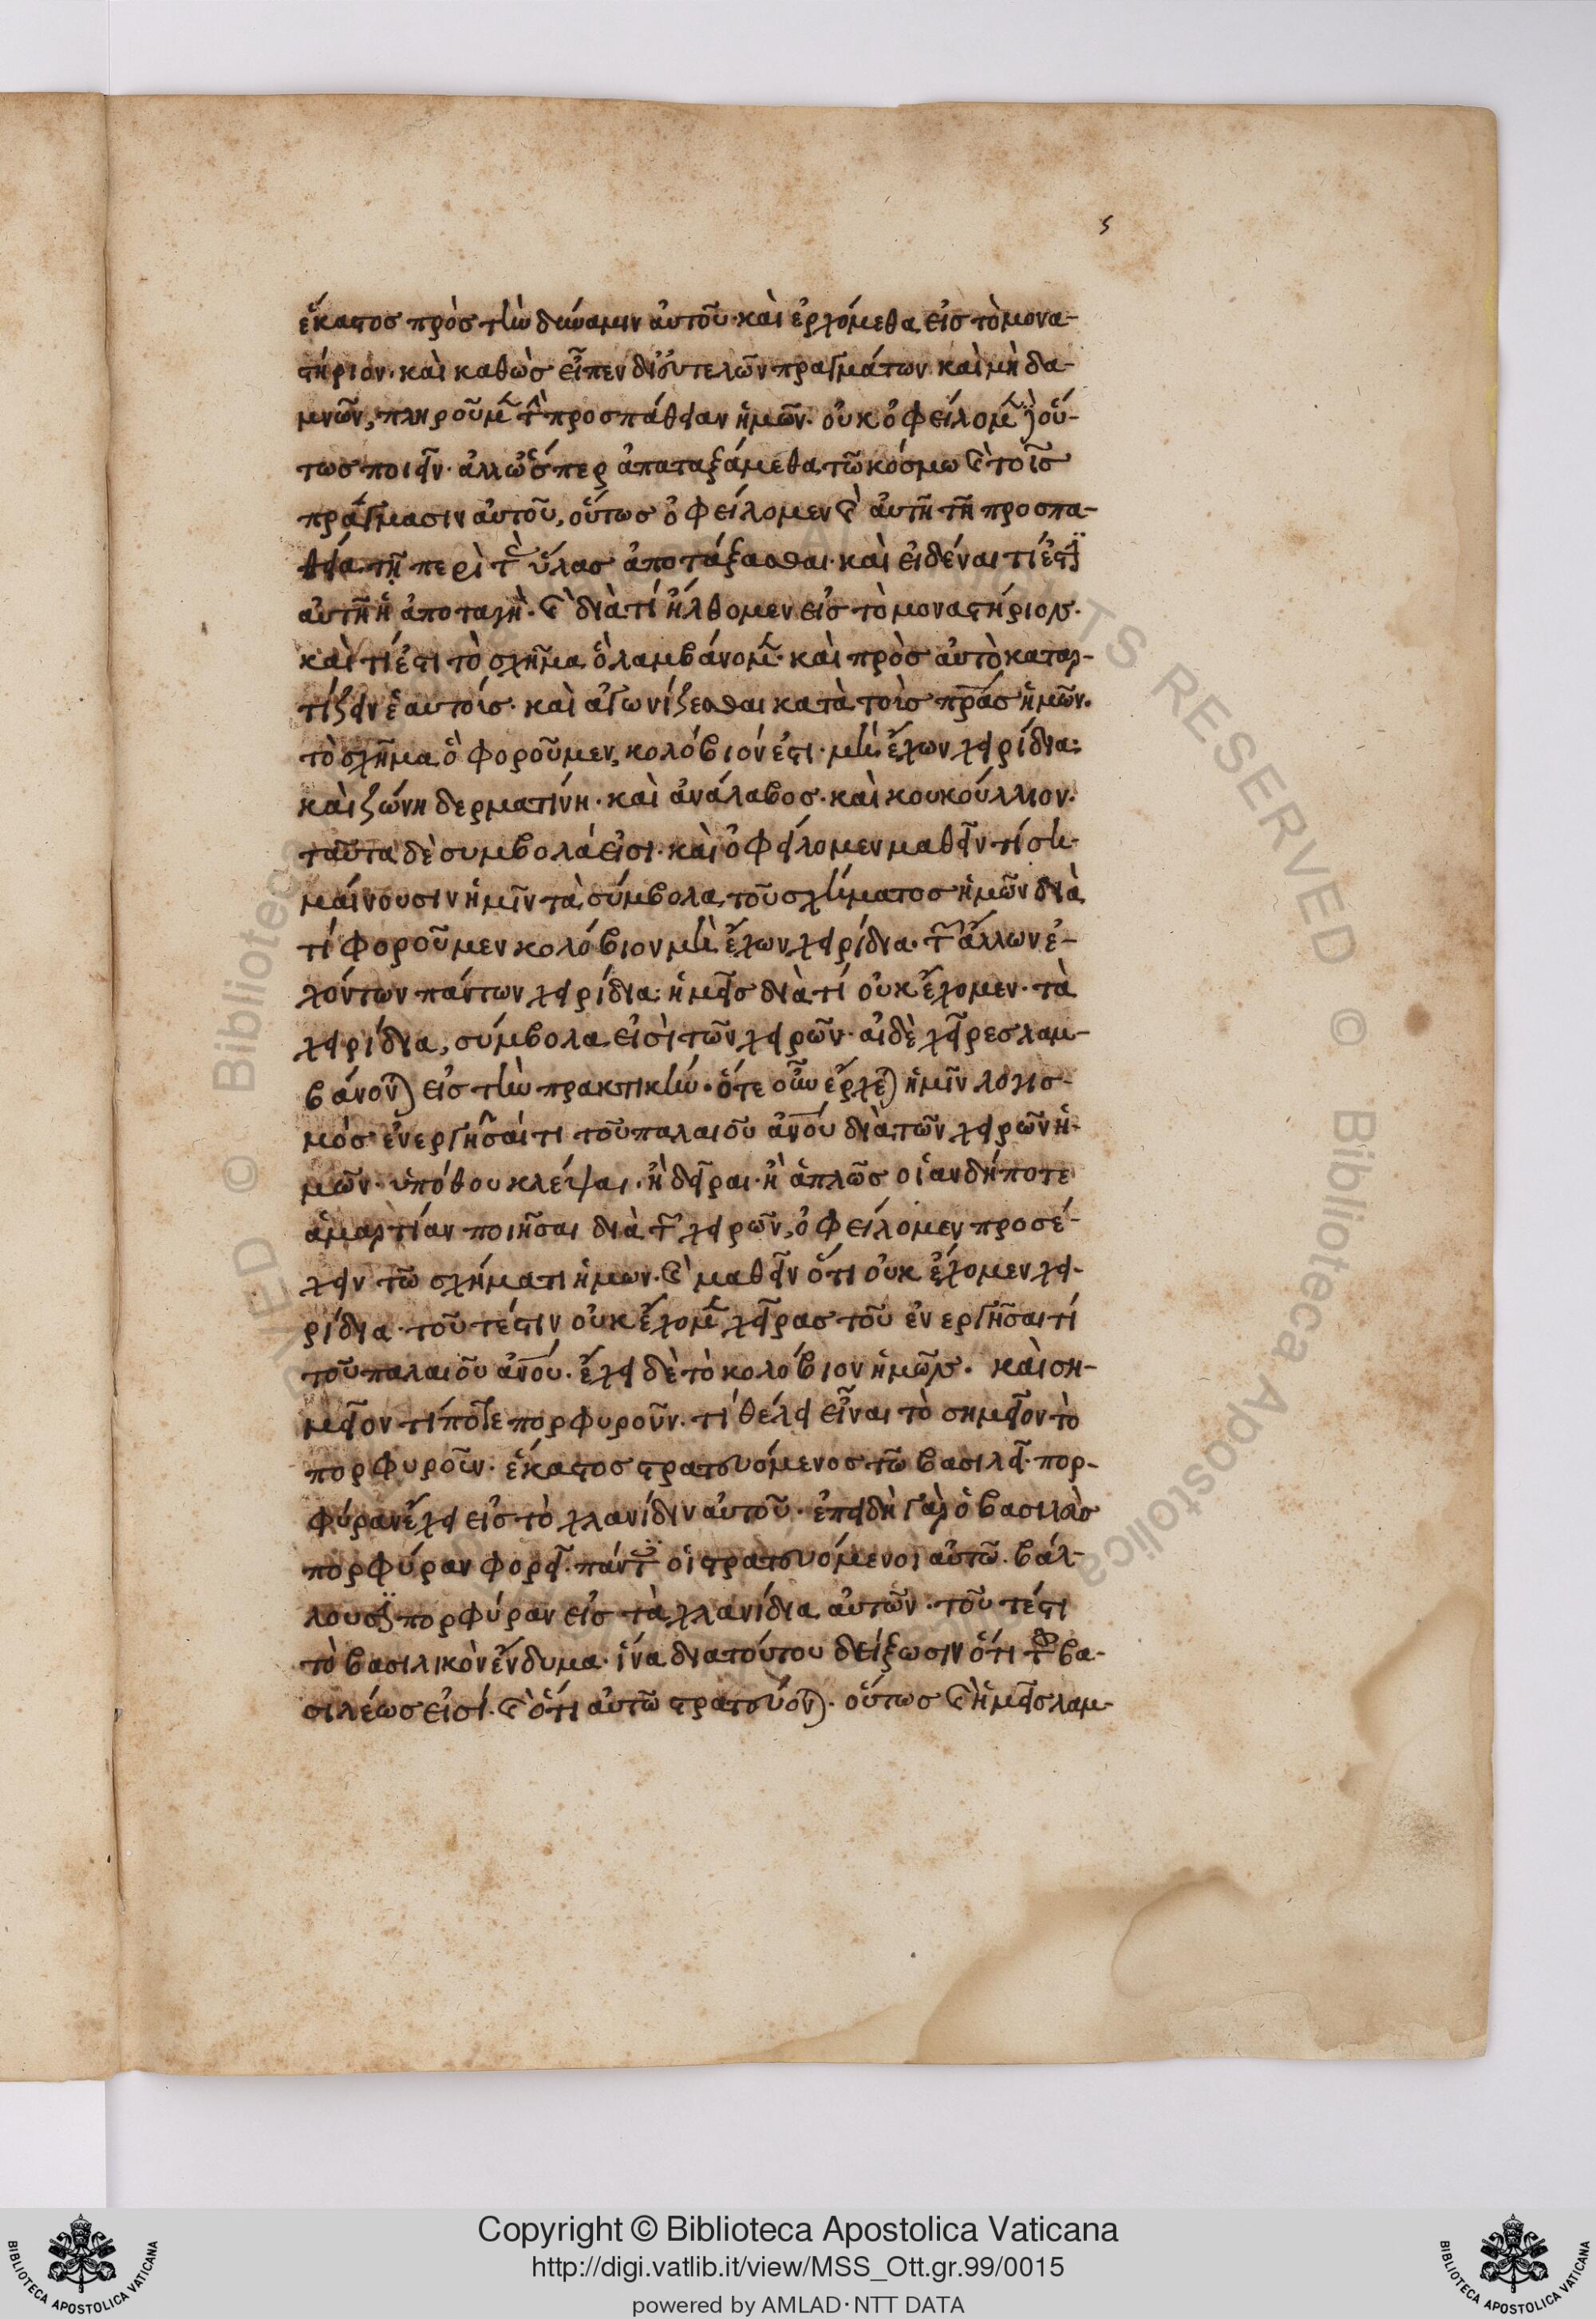 5
ἕκαστος πρὸς τὴν δύναμιν αὐτοῦ· καὶ ἐρχόμεθα εἰς τὸ μονα-
στήριον· καὶ καθὼς εἶπεν δι' εὐτελῶν πραγμάτων καὶ μηδα-
μνῶν, πληροῦμεν τὴν προσπάθειαν ἡμῶν· οὐκ ὀφείλομεν δὲ οὕ-
τως ποιεῖν· ἀλλ' ὥσπερ ἀπεταξάμεθα τῶ κόσμω καὶ τοῖς
πράγμασιν αὐτοῦ, οὕτως ὀφείλομεν καὶ αὐτῆ τῆ προσπα-
θεία τῆ περὶ τὰς ὕλας ἀποτάξασθαι· καὶ εἰδέναι τί ἐστιν
αὐτὴ ἡ ἀποταγή· καὶ διὰ τί ἤλθομεν εἰς τὸ μοναστήριον·
καὶ τί ἐστι τὸ σχῆμα ὃ λαμβάνομεν· καὶ πρὸς αὐτὸ καταρ-
τίζειν ἑαυτοὺς· καὶ ἀγωνίζεσθαι κατὰ τοὺς πρας ἡμῶν·
τὸ σχῆμα ὃ φοροῦμεν, κολόβιον ἐστι· μὴ ἔχων χειρίδια:
καὶ ζώνη δερματίνη· καὶ ἀνάλαβος· καὶ κουκούλλιον·
ταῦτα δὲ συμβολά εἰσι· καὶ ὀφείλομεν μαθεῖν τί ση-
μαίνουσιν ἡμῖν τὰ σύμβολα τοῦ σχήματος ἡμῶν διὰ
τί φοροῦμεν κολόβιον μὴ ἔχων χειρίδια· τῶν ἄλλων ἐ-
χόντων πάντων χειρίδια: ἡμεῖς διὰ τί οὐκ ἔχομεν· τὰ
χειρίδια, σύμβολα εἰσὶ τῶν χειρῶν· αἱ δὲ χεῖρες λαμ-
βάνονται εἰς τὴν πρακτικήν· ὅτε οὖν ἔρχεται ἡμῖν λογισ-
μός ἐνεργῆσαί τι τοῦ παλαιοῦ ἀνου διὰ τῶν χειρῶν ἡ-
μῶν· ὑπόθου κλείψαι· ἢ δεῖραι· ἢ ἁπλῶς οἱανδήποτε
ἁμαρτίαν ποιῆσαι διὰ τῶν χειρῶν, ὀφείλομεν προσέ-
χειν τῶ σχήματι ἡμων· καὶ μαθεῖν ὅτι οὐκ ἔχομεν χει-
ρίδια· τοῦτέστιν οὐκ ἔχομεν χεῖρας τοῦ ἐνεργῆσαι τί
τοῦ παλαιοῦ ἀνου· ἔχει δὲ τὸ κολόβιον ἡμῶν· καὶ ση-
μεῖον τίποτε πορφυροῦν· τί θέλει εἶναι τὸ σημεῖον τὸ
πορφυροῦν· ἕκαστος στρατευόμενος τῶ βασιλεῖ· πορ-
φύραν ἔχει εἰς τὸ χλανίδιν αὐτοῦ· ἐπειδὴ γὰρ ὁ βασιλεὺς
πορφύραν φορεῖ· πάντες οἱ στρατευόμενοι αὐτῶ· βάλ-
λουσιν πορφύραν εἰς τὰ χλανίδια αὐτῶν· τοῦτέστι
τὸ βασιλικὸν ἔνδυμα· ἵνα διατούτου δείξωσιν ὅτι τοῦ βα-
σιλέως εἰσί· καὶ ὅτι αὐτῶ στρατεύονται· οὕτως καὶ ἡμεῖς λαμ-
Copyright © Biblioteca Apostolica Vaticana
http://digi.vatlib.it/view/MSS_Ott.gr.99/0015
powered by AMLAD·NTT DATA